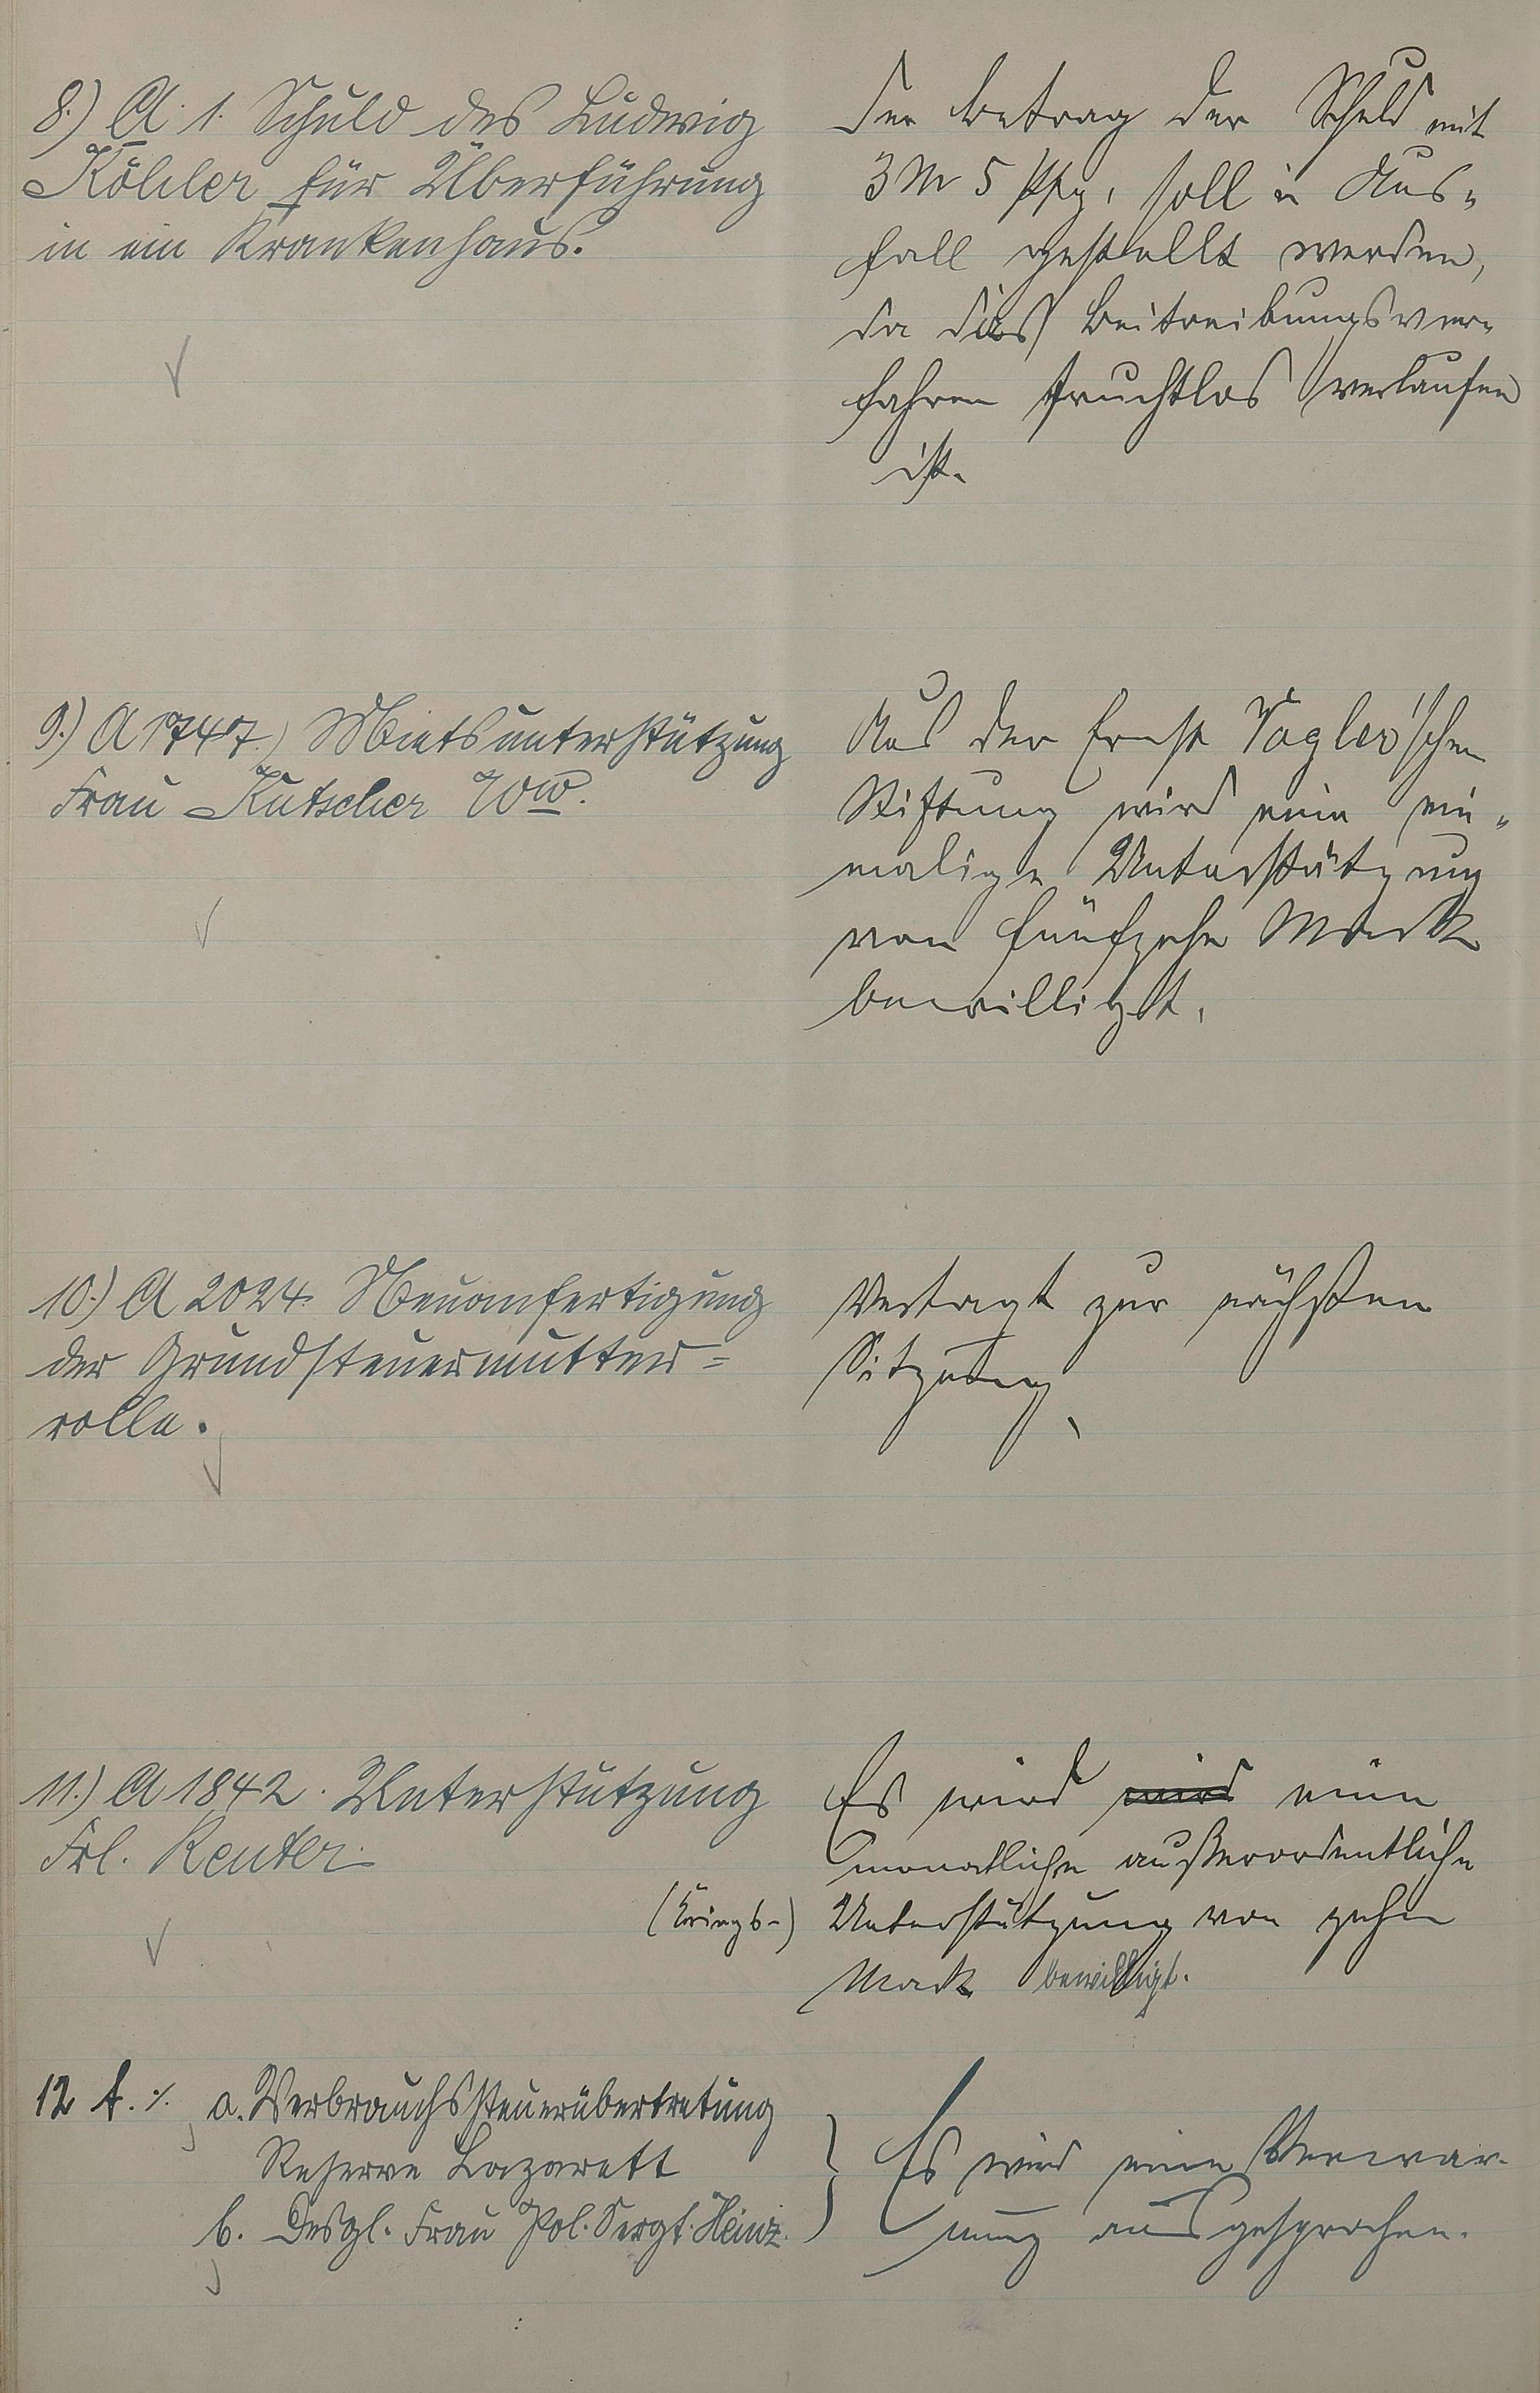 8.) A. 1. Schuld des Ludwig
Köhler für Überführung
in ein Krankenhaus.
Der Betrag der Schuld mit
3 M 5 Pfg, soll in Aus-
fall gestellt werden,
da das Beitreibungsver-
fahren fruchtlos verlaufen
ist.
9.) A 1747.) Mietsunterstützung
Frau Kutscher Ww.
Aus der Ernst Vogler'schen
Stiftung wird eine ein-
malige Unterstützung
von fünfzehn Mark
bewilligt.
10.) A 2024. Neuanfertigung
der Grundsteuermutter=
rolle.
Vertagt zur nächsten
Sitzung.
11.) A 1842. Unterstützung
Frl. Reuter.
Es wird wird eine
monatliche außerordentliche
(Kriegs-) Unterstützung von zehn
Mark bewilligt.
12 A. ∕. a. Verbrauchssteuerübertretung
Reserve Lazarett
b. Desgl. Frau Pol. Sergt. Heinz.
Es wird eine Verwar-
nung ausgesprochen.